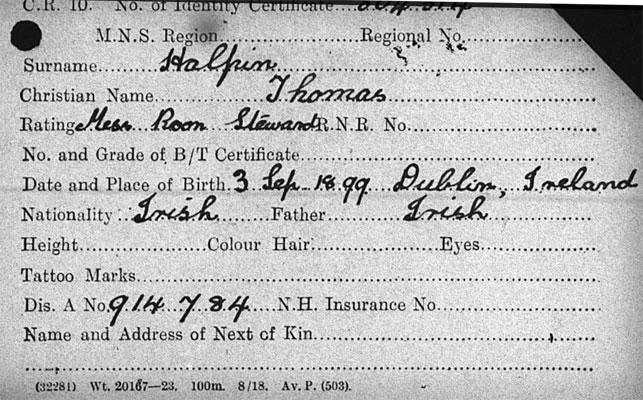 C.R. 10. No. of Identity Certificate
M.N.S. Region..........Regional No.
Surname Halpin
Christian Name Thomas
Rating Mess Room Steward R.N.R. No.
No. and Grade of B/T Certificate
Date and Place of Birth 3 Sep 1899 Dublin, Ireland
Nationality Irish Father Irish
Height..........Colour Hair..........Eyes
Tattoo Marks
Dis. A No. 914784 N.H. Insurance No.
Name and Address of Next of Kin
(32281) Wt. 20167—23. 100m. 8/18. Av. P. (503).